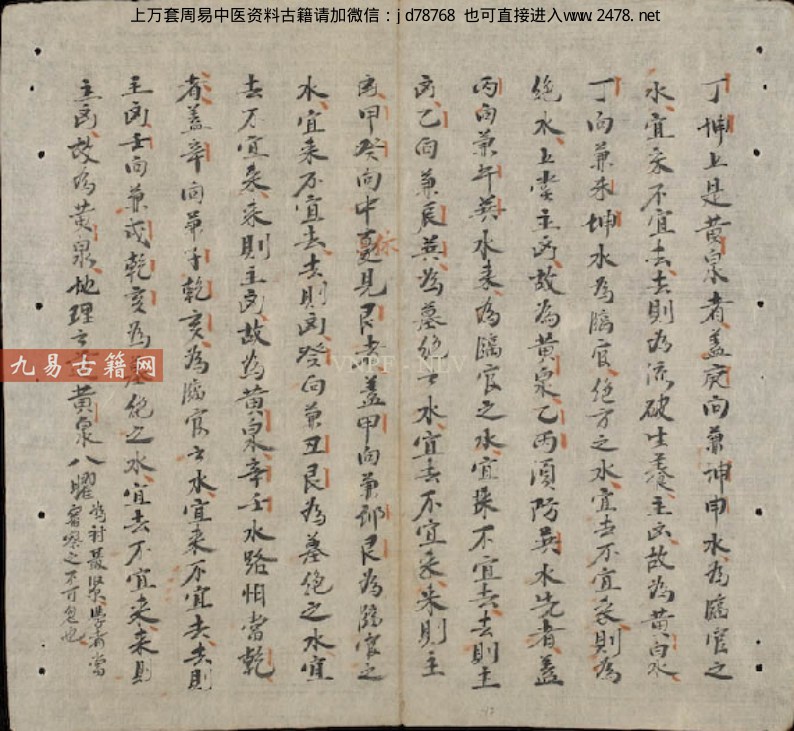 上万套周易中医资料古籍请加微信：jd78768 也可直接进入www.2478.net
丁坤上是黄泉者蓋庚向兼坤申水為臨官之
水宜来不宜去去則為流破生養主凶故為黄白水
丁向兼未坤水為臨官絶方之水宜去不宜来則為
絶水上堂主凶故為黄泉乙丙須防巽水先者蓋
丙向兼午巽水来為臨官之水宜採不宜去去則主
凶乙向兼辰巽為墓絶之水宜去不宜来来則主
凶甲癸向中憂見艮者蓋甲向兼卯艮為臨官之
水宜来不宜去去則凶癸向兼丑艮為墓絶之水宜
去不宜来来則主凶故為黄泉辛壬水路怕當乾
者蓋辛向兼于乾亥為臨官之水宜来不宜去去則
主凶壬向兼戌乾亥為墓絶之水宜去不宜来来則
主凶故為黄泉地理之黄泉八曜為封最緊學者當
審察之不可忽也
依
九易古籍网
VNPF - NLV